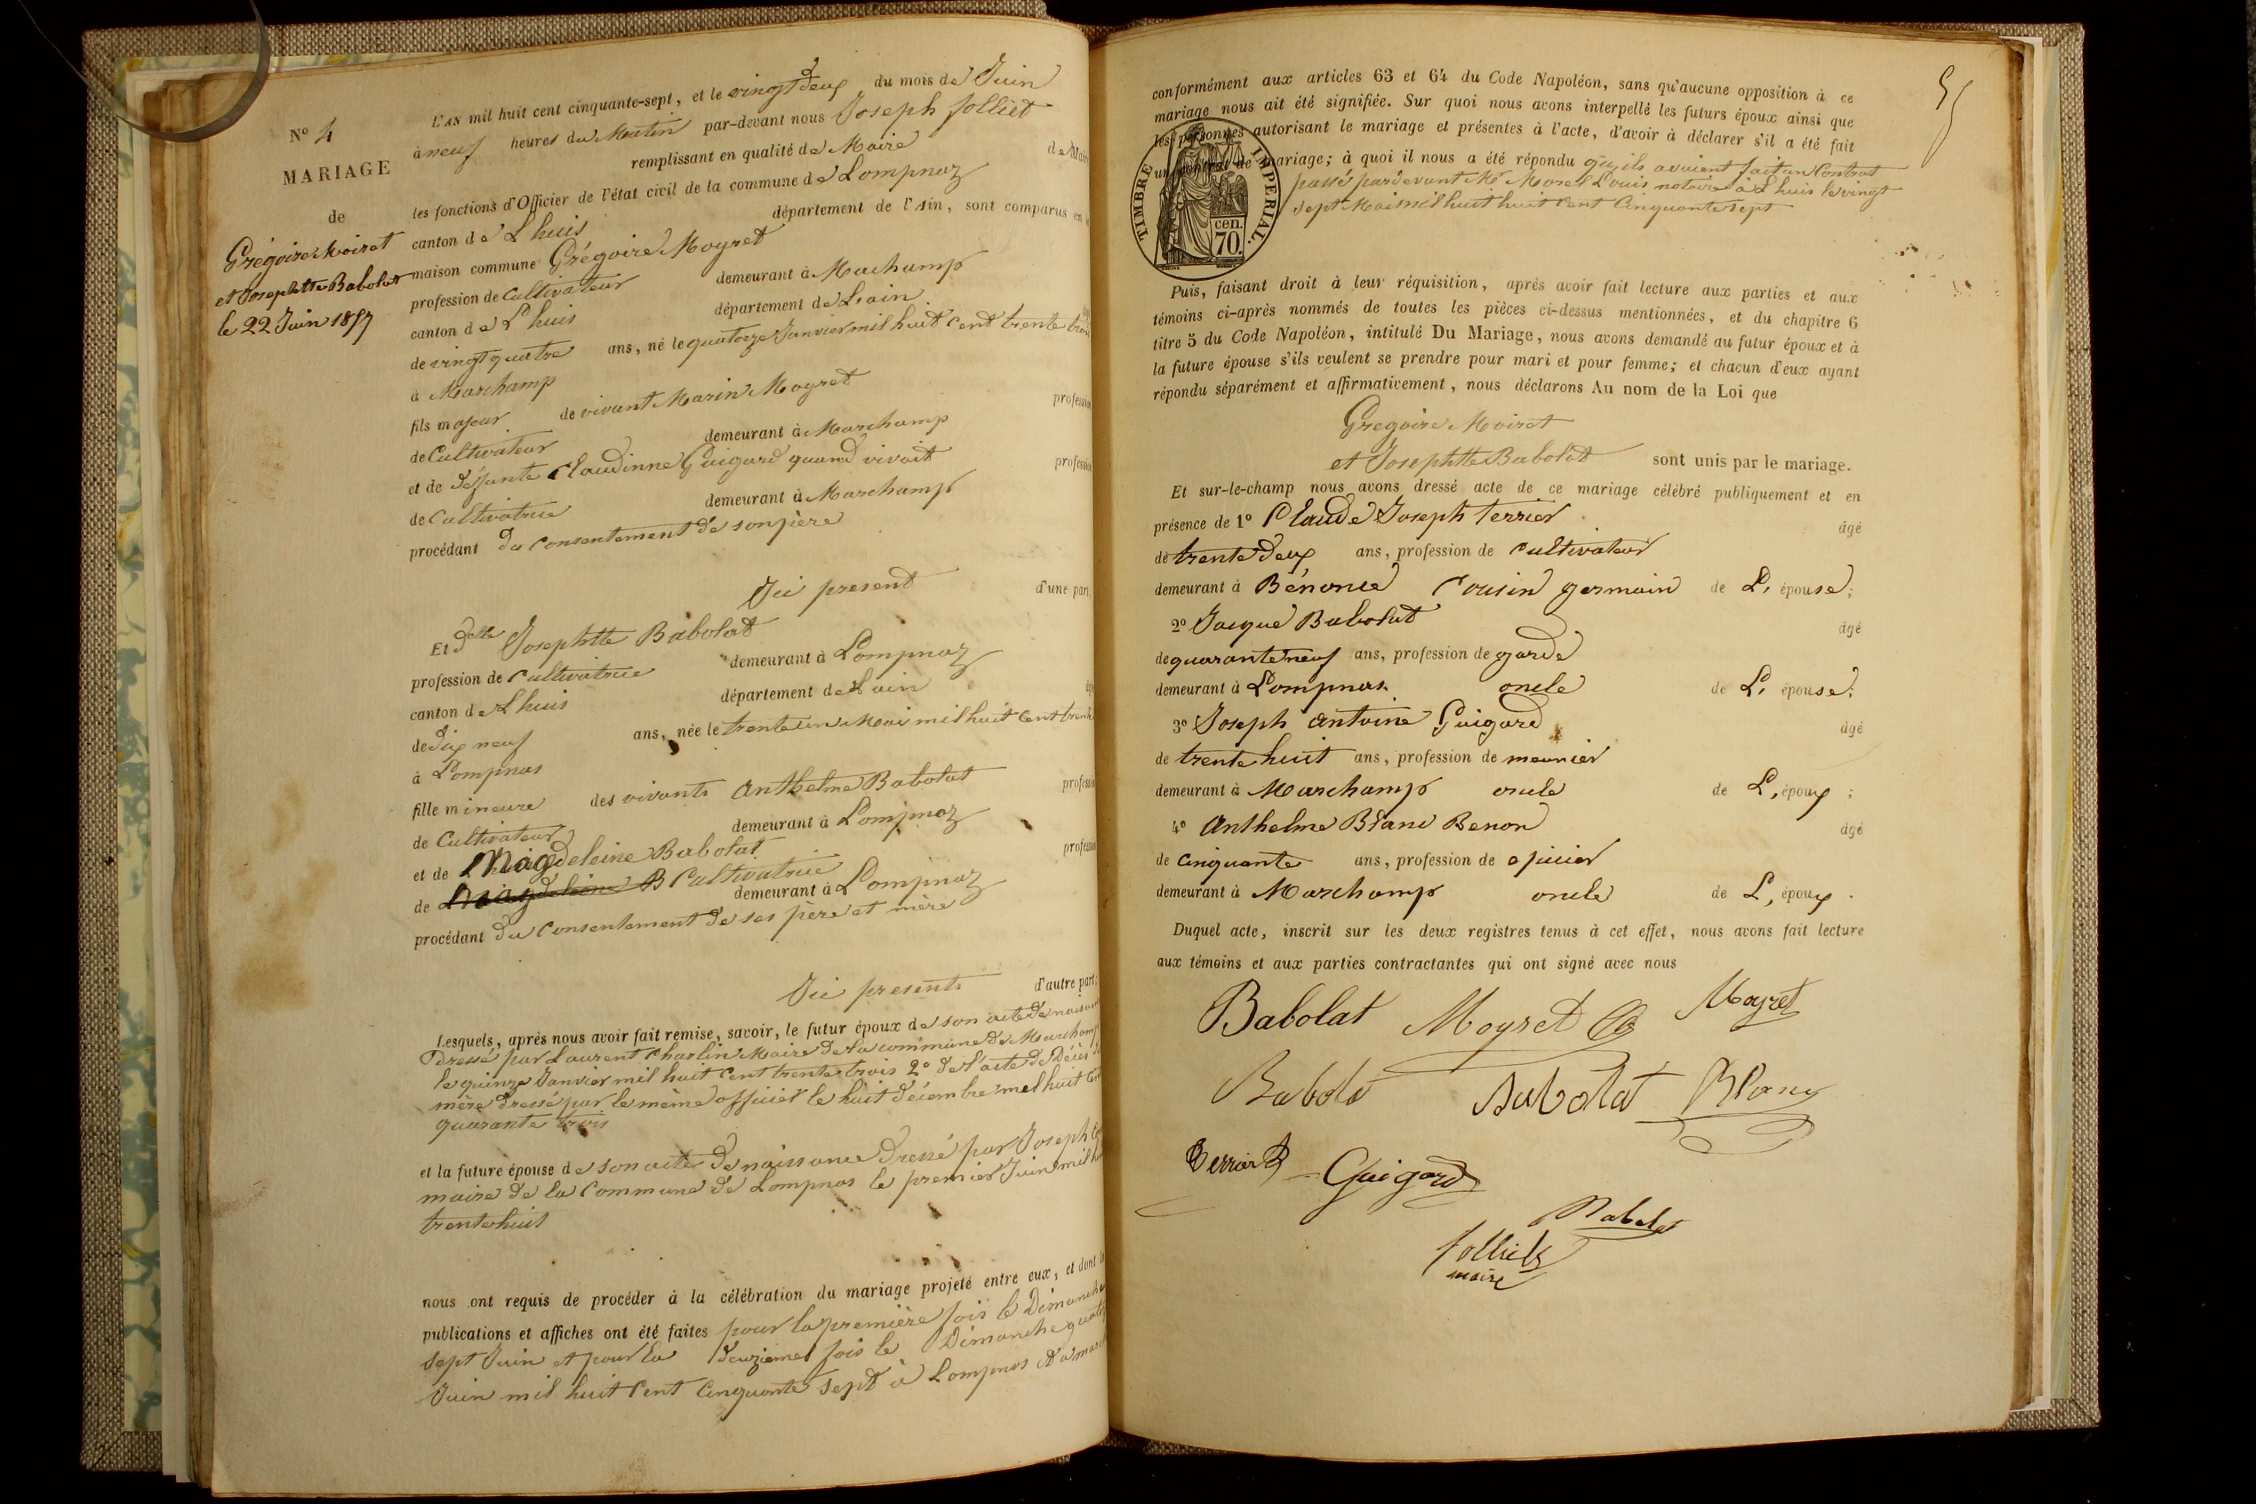 N° 4
MARIAGE
de
Grégoire Moiret
et Josephtte Babolat
le 22 Juin 1857
L'AN mil huit cent cinquante-sept, et le vingt deux du mois de Juin
à neuf heures du Matin par-devant nous Joseph Jolliet
remplissant en qualité de Maire
les fonctions d'Officier de l'état civil de la commune de Lompnaz
canton de Lhuis département de l'Ain, sont comparus en
maison commune Grégoire Moyret
profession de Cultivateur demeurant à Marchamp
canton de Lhuis département de L'ain
de vingt quatre ans, né le quatorze Janvier mil huit cent trente trois
à Marchamp
fils majeur de vivant Marin Moyret
de Cultivateur demeurant à Marchamp
et de deffunte Claudinne Guigard quand vivait
de Cultivatrice demeurant à Marchamp
procédant du Consentement de son père
Ici present d'une part,
Et delle Josephtte Babolat
profession de Cultivatrice demeurant à Lompnaz
canton de Lhuis département de L'ain
de dix neuf ans, née le trente un Mai mil huit cent trente
à Lompnas
fille mineure des vivants Anthelme Babolat
de Cultivateur demeurant à Lompnaz
et de Magdeleine Babolat
de Magdeleine B Cultivatrice demeurant à Lompnaz
procédant du Consentement de ses père et mère
Ici presents d'autre part;
Lesquels, après nous avoir fait remise, savoir, le futur époux de son acte de naissance
dressé par Laurent Charlin Maire de la commune de Marchamp
le quinze Janvier mil huit cent trente trois 2° de l'acte de Décès de
mère dressé par le même officier le huit décembre mil huit cent
quarante trois
et la future épouse de son acte de naissance dressé par Joseph
maire de la Commune de Lompnas le premier Juin mil
trente huit
nous ont requis de procéder à la célébration du mariage projeté entre eux, et dont
publications et affiches ont été faites pour la première fois le Dimanche
sept Juin et pour la deuzieme fois le Dimanche quatorze
Juin mil huit cent cinquante sept à Lompnas et a
conformément aux articles 63 et 64 du Code Napoléon, sans qu'aucune opposition à ce
mariage nous ait été signifiée. Sur quoi nous avons interpellé les futurs époux ainsi que
les personnes autorisant le mariage et présentes à l'acte, d'avoir à déclarer s'il a été fait
un contrat de mariage; à quoi il nous a été répondu qu'ils avaient fait un Contrat
passé pardevant Me Morel Louis notaire à Lhuis le vingt
sept Mai mil huit huit cent cinquante sept
TIMBRE IMPERIAL.
cen.
70.
Puis, faisant droit à leur réquisition, après avoir fait lecture aux parties et aux
témoins ci-après nommés de toutes les pièces ci-dessus mentionnées, et du chapitre 6
titre 5 du Code Napoléon, intitulé Du Mariage, nous avons demandé au futur époux et à
la future épouse s'ils veulent se prendre pour mari et pour femme; et chacun d'eux ayant
répondu séparément et affirmativement, nous déclarons Au nom de la Loi que
Gregoire Moiret
et Josephtte Babolat sont unis par le mariage.
Et sur-le-champ nous avons dressé acte de ce mariage célébré publiquement et en
présence de 1° Claude Joseph terrier âgé
de trente deux ans, profession de Cultivateur
demeurant à Bénonce Cousin germain de L, épouse;
2° Jacque Babolat âgé
de quarante neuf ans, profession de garde
demeurant à Lompnas oncle de L, épouse;
3° Joseph antoine Guigard âgé
de trente huit ans, profession de meunier
demeurant à Marchamp oncle de L, époux;
4° Anthelme Blanc Benon âgé
de Cinquante ans, profession de epicier
demeurant à Marchamp oncle de L, époux.
Duquel acte, inscrit sur les deux registres tenus à cet effet, nous avons fait lecture
aux témoins et aux parties contractantes qui ont signé avec nous
Babolat Moyret G Moyret
Babolat Babolat Blanc
Terrier Guigard
Babolat
Jolliet
maire